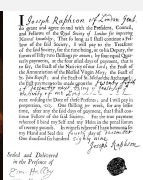 I Joseph Raphson of London Gent.
do grant and agree to and with the President, Council,
and Fellows of the Royal Society of London for improving
Natural knowledge, That so long as I shall continue a Fel-
low of the said Society, I will pay to the Treasurer
of the said Society, for the time being, or to his Deputy, the
Sum of fifty two shillings per annum, by four equal Quar-
terly payments, at the four usual days of payment, that is
to say, the Feast of the Nativity of our Lord, the Feast of
the Annunciation of the Blessed Virgin Mary, the Feast of
St. John Baptist, and the Feast of St. Michael the Archangel;
the first payment to be made upon the
next ensuing the Date of these Presents; and I will pay in
proportion, viz. One shilling per week, for any lesser
time, after any of the said days of payment, that I shall con-
tinue Fellow of the said Society. For the true payment
whereof I bind my Self and my Heirs in the penal Sum
of twenty pounds. In witness whereof I have hereunto set
my Hand and Seal this day of
One thousand six hundred
Sealed and Delivered
in the Presence of
Joseph Raphson